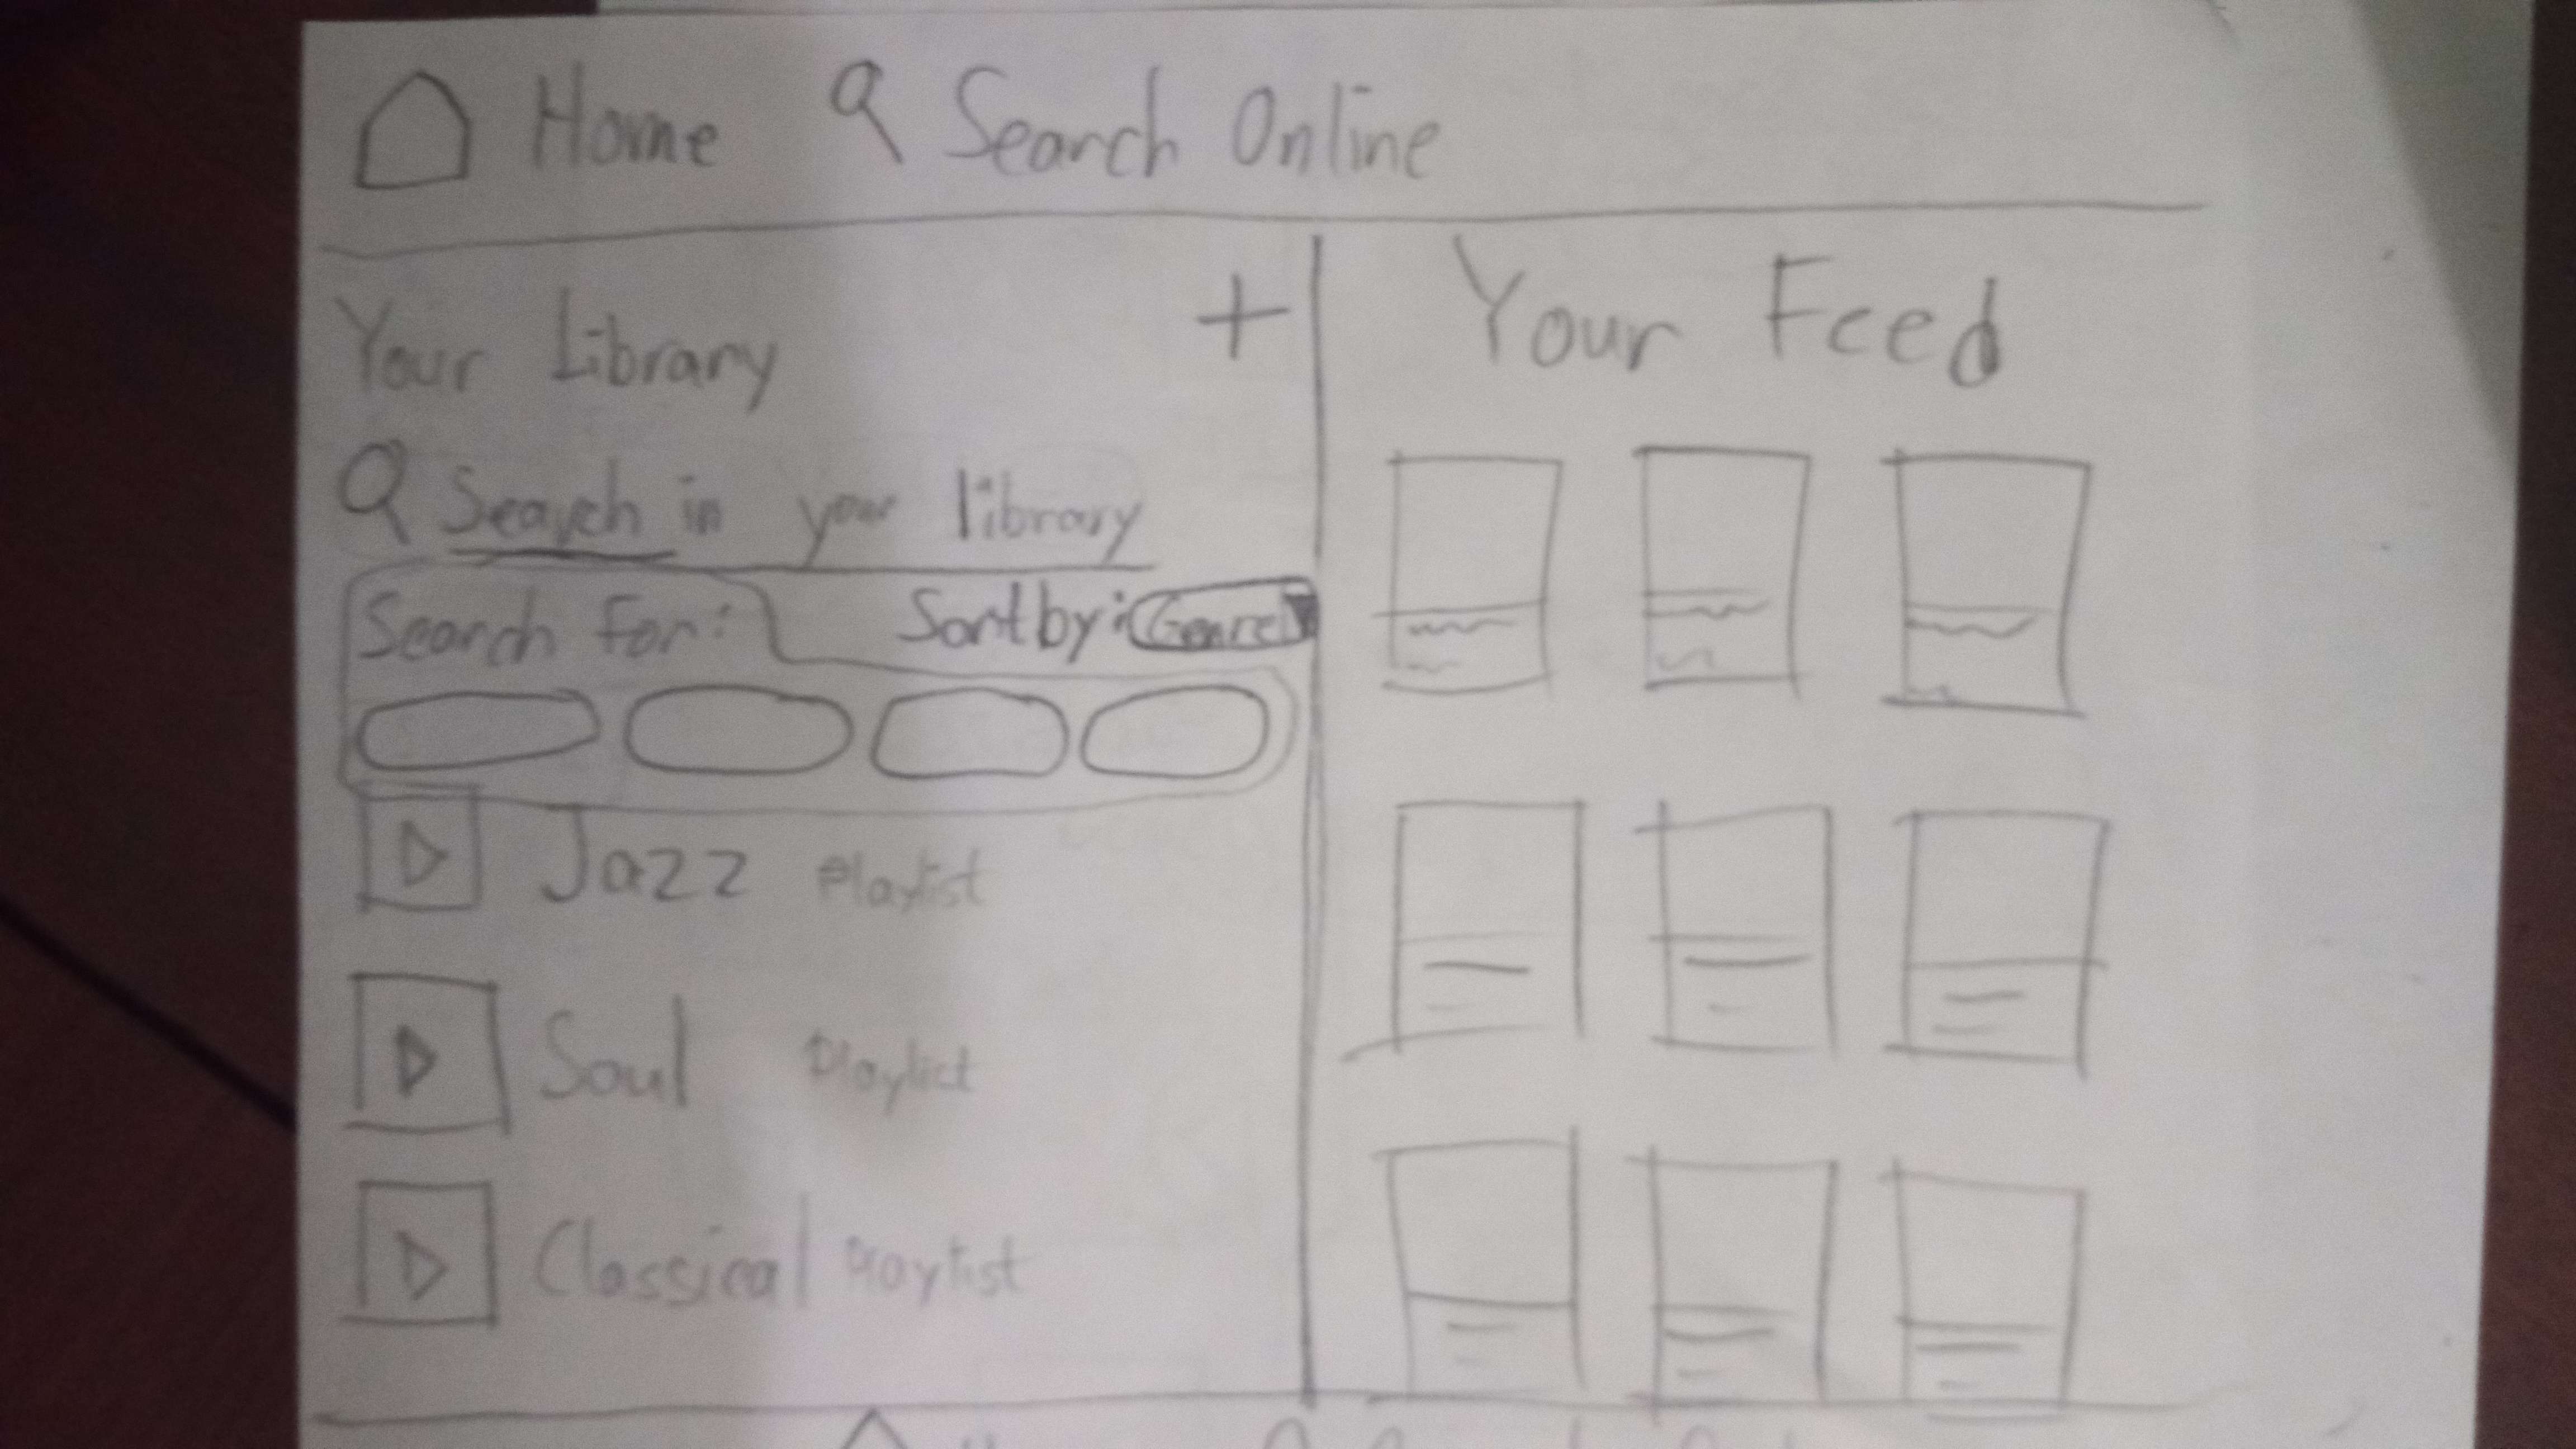 Home Search Online
Your Library +
Search in your library
Search For: Sort by: Genre
Jazz Playlist
Soul Playlist
Classical Playlist
Your Feed